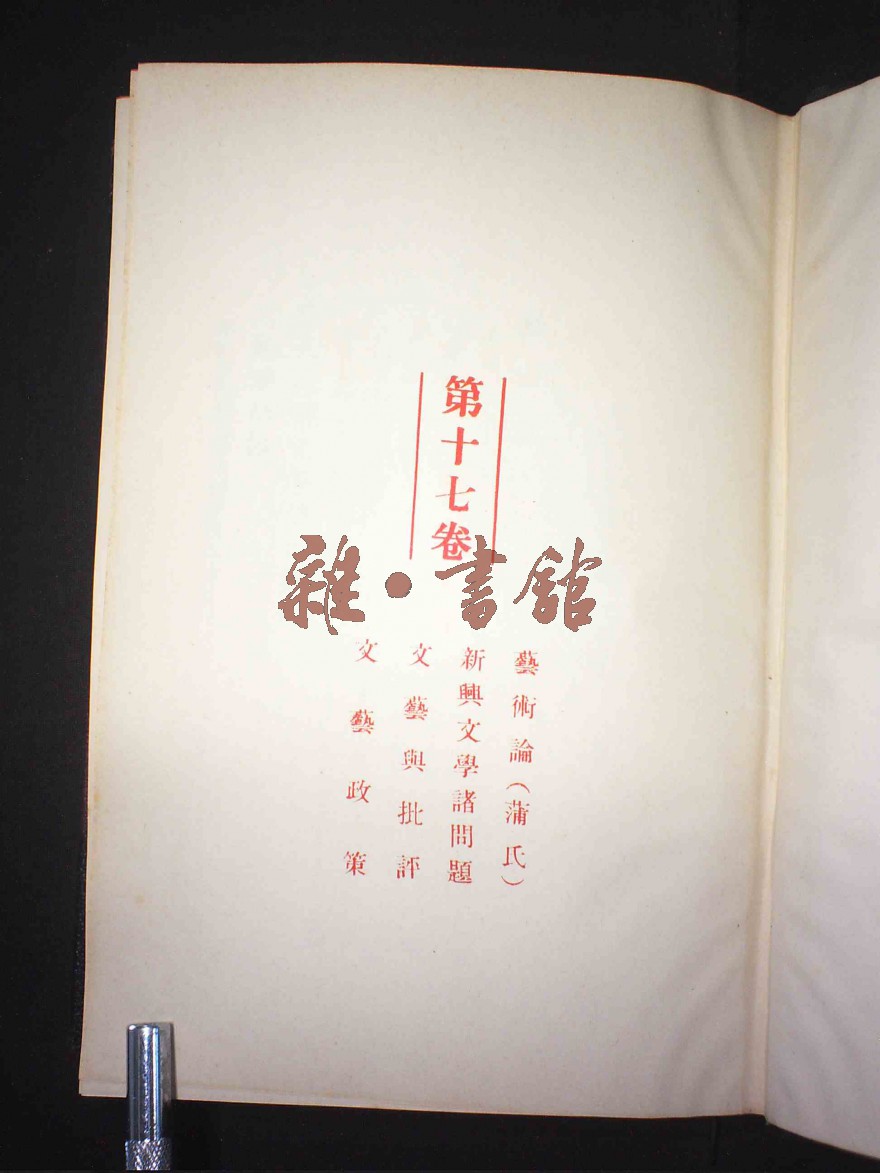 第十七卷
藝術論（蒲氏）
新興文學諸問題
文藝與批評
文藝政策
雜·書館